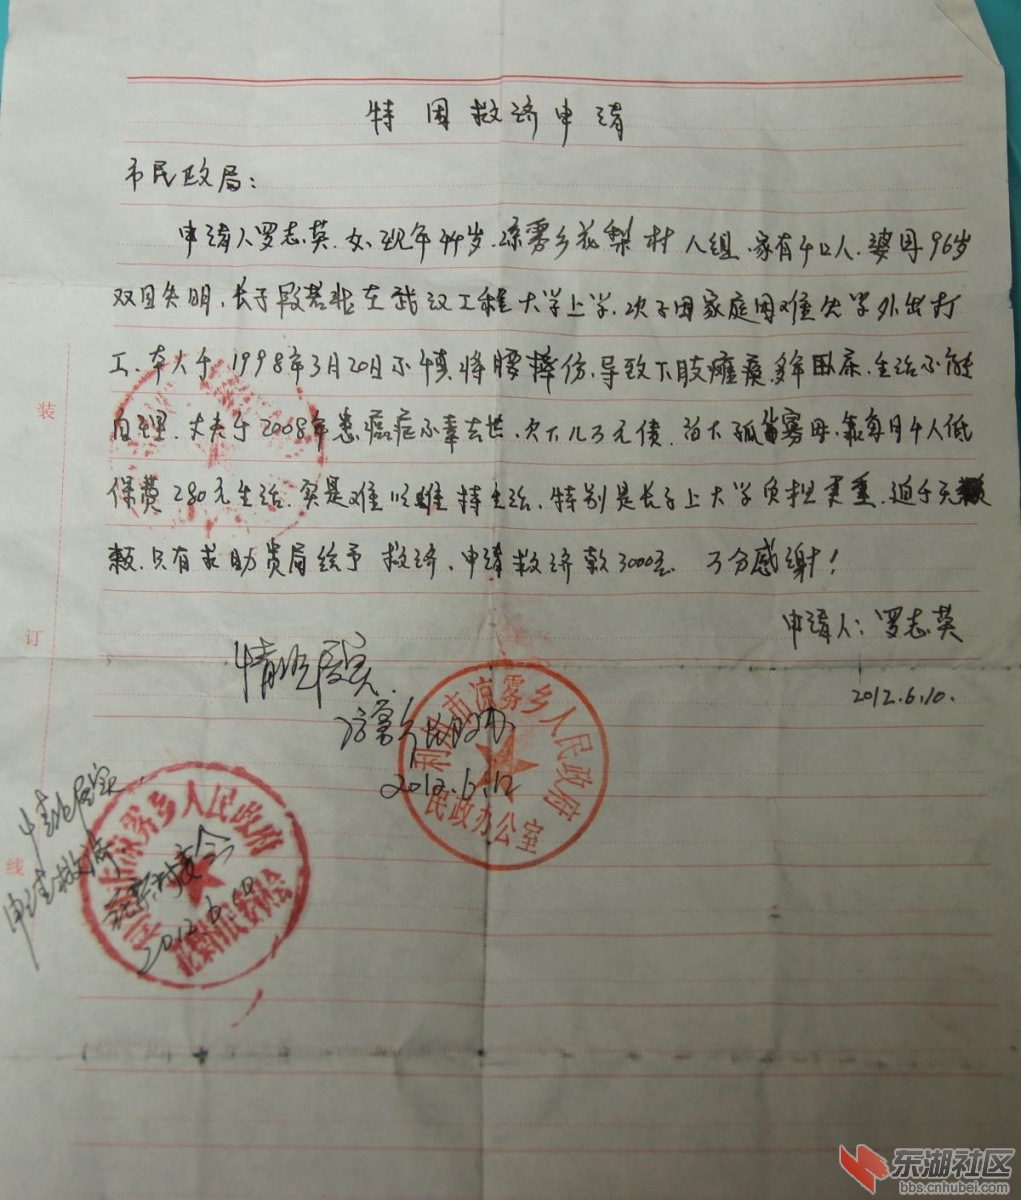 特困救济申请
市民政局：
申请人罗志英，女，现年44岁，凉雾乡花梨村 人组，家有4口人，婆母96岁
双目失明，长子段 在武汉工程大学上学，次子因家庭困难失学外出打
工，本人于1998年3月20日不慎将腰摔伤，导致下肢瘫痪，多年卧床，生活不能
自理，丈夫于2008年患癌症不幸去世，欠下几万元债，留下孤 寡母，靠每月4人低
保费280元生活，实是难以维持生活，特别是长子上大学负担更重，迫于无
赖，只有求助贵局给予救济，申请救济款3000元 万分感谢！
申请人：罗志英
2012.6.10.
情况属实
凉雾乡民政办
2012.6.12
利川市凉雾乡人民政府
民政办公室
情况属实
申请救济
花梨村委会
2012.6.10
凉雾乡人民政府
装
订
线
东湖社区
bbs.cnhubei.com